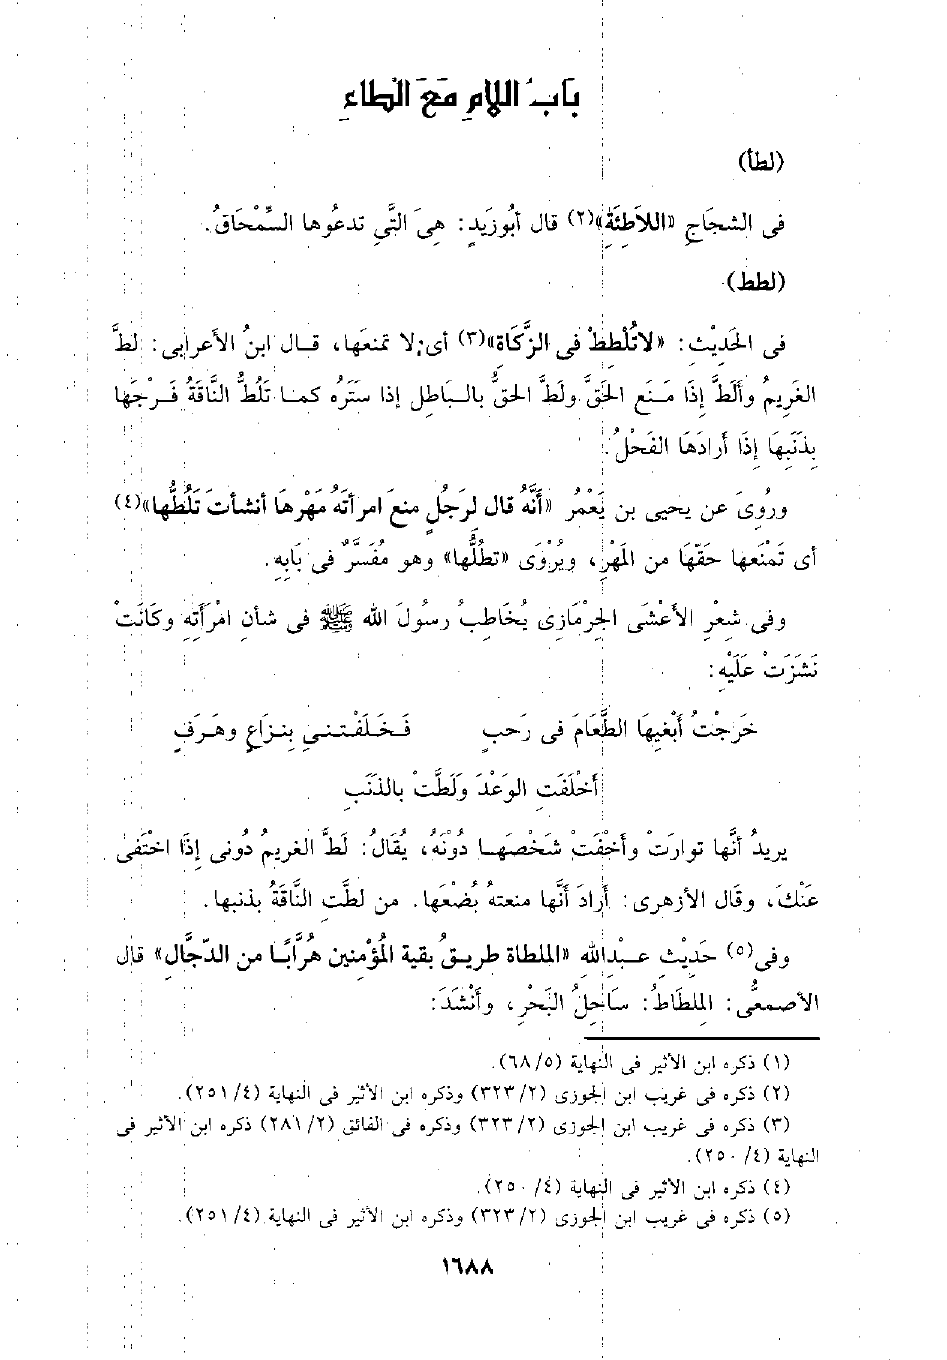 بَابُ اللامِ مَعَ الْطاءِ
(لطأ)
فى الشجَاجِ «اللاَطِئَةِ»(٢) قال أبُوزَيدٍ: هِىَ التَّىِ تدعُوها السِّمْحَاقُ.
(لطط)
فى الحَدِيْث: «لاتُلْطِطْ فى الزَّكَاة»(٣) أى: لا تمنعَها، قال ابنُ الأعرابى: لطَّ
الغَرِيمُ وألَطَّ إذَا مَنَع الحَقَّ ولَطَّ الحقُّ بالباطلِ إذا ستَرَه كما تَلُطُّ النَّاقَةُ فَرْجَها
بِذَنَبِها إذَا أرادَهَا الفَحْلُ.
ورُوِىَ عن يحيى بن يَعْمُر «أَنَّهُ قال لرَجُلٍ منعَ امرأتَهُ مَهْرهَا أنشأتَ تَلُطُّها»(٤)
أى تَمْنَعها حَقّهَا من المَهْرِ، ويُرْوَى «تطُلُّها» وهو مُفَسَّرٌ فى بَابِهِ.
وفى شعْرِ الأعْشَى الجِرْمَازِى يُخَاطِبُ رسُولَ الله ﷺ فى شأنِ امْرَأَتِهِ وكَانَتْ
نَشَزَتْ عَلَيْهِ:
خَرَجْتُ أبْغيِهَا الطَّعَامَ فى رَحبٍ فَخَلَفْتنىِ بِنزَاعٍ وهَرَفٍ
أخْلَفَتِ الوَعْدَ ولَطَّتْ بالذَنَبِ
يريدُ أنَّها توارتْ وأخْفَتْ شَخْصهَا دُوْنَهُ، يُقَالُ: لَطَّ الغريمُ دُونى إذَا اخْتَفىٰ
عَنْكَ، وقَال الأزهرى: أرادَ أنَّها منعتهُ بُضْعَها. من لطَّتِ النَّاقَةُ بذنبها.
وفى(٥) حَدِيْثِ عبْدالله «الملطاة طريقُ بقية المُؤْمنين هرُاَّبًا من الدّجَّالِ» قال
الأصمعُّى: المِلطَاطُ: سَاحلُ البَحْرِ، وأنْشَدَ:
(١) ذكره ابن الأثير فى النهاية (٦٨/٥).
(٢) ذكره فى غريب ابن الجوزى (٣٢٣/٢) وذكره ابن الأثير فى النهاية (٢٥١/٤).
(٣) ذكره فى غريب ابن الجوزى (٣٢٣/٢) وذكره فى الفائق (٢٨١/٢) ذكره ابن الأثير فى
النهاية (٢٥٠/٤).
(٤) ذكره ابن الأثير فى النهاية (٢٥٠/٤).
(٥) ذكره فى غريب ابن الجوزى (٣٢٣/٢) وذكره ابن الأثير فى النهاية (٢٥١/٤).
١٦٨٨